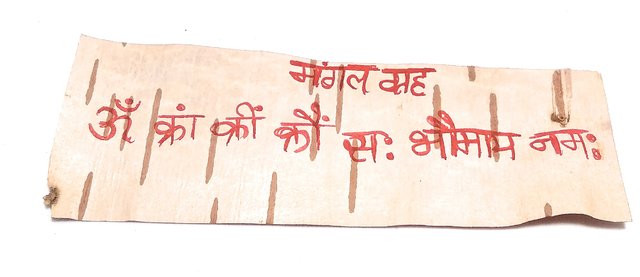 मांगल ग्रह
ॐ क्रां क्रीं क्रौं सः भौमाय नमः